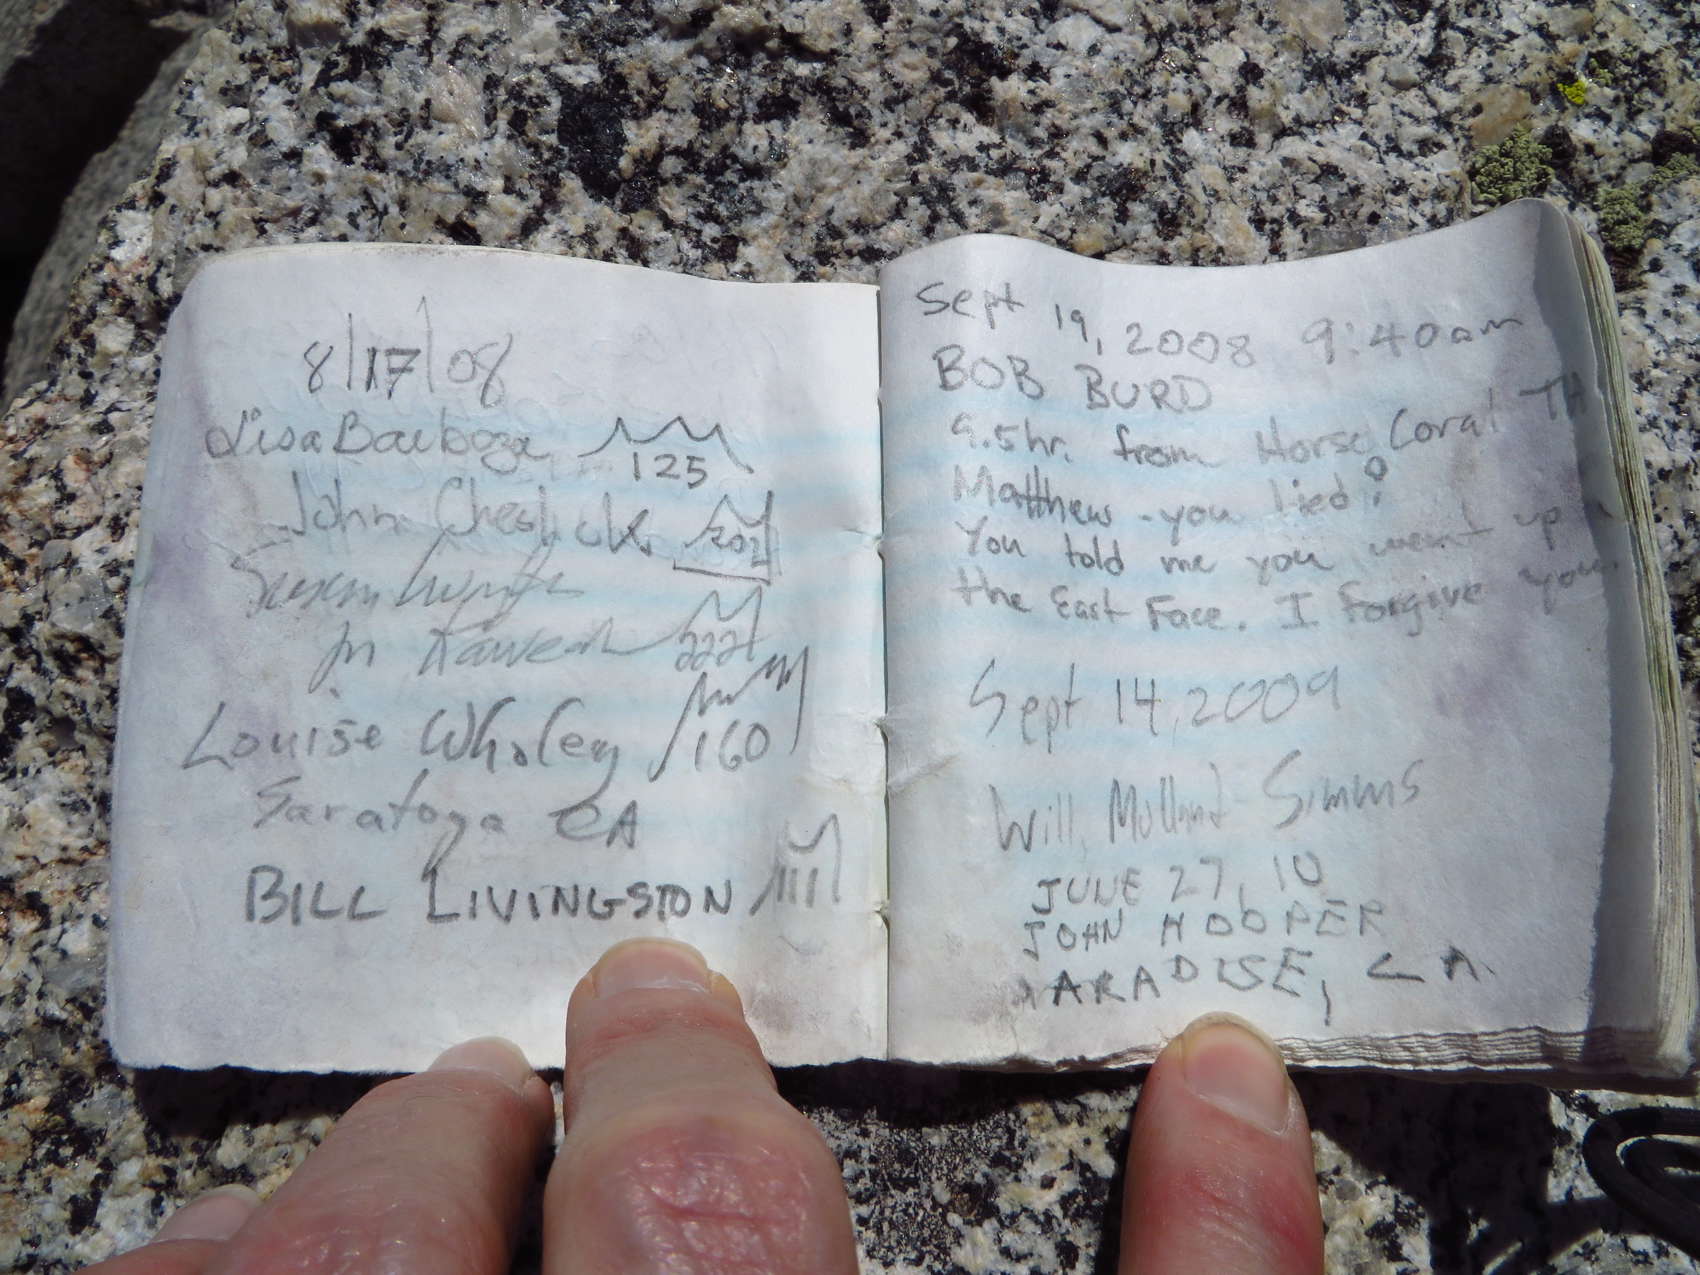 8/17/08
Lisa Barboza 125
John Cheslick 202
Susan
in Kaweah 222
Louise Wholey 160
Saratoga CA
BILL LIVINGSTON 111
Sept 19, 2008 9:40am
BOB BURD
9.5hr. from Horse Coral TH
Matthew - you lied!
You told me you went up
the East Face. I forgive you.
Sept 14, 2009
Will Simms
JUNE 27, 10
JOHN HOOPER
PARADISE, CA.